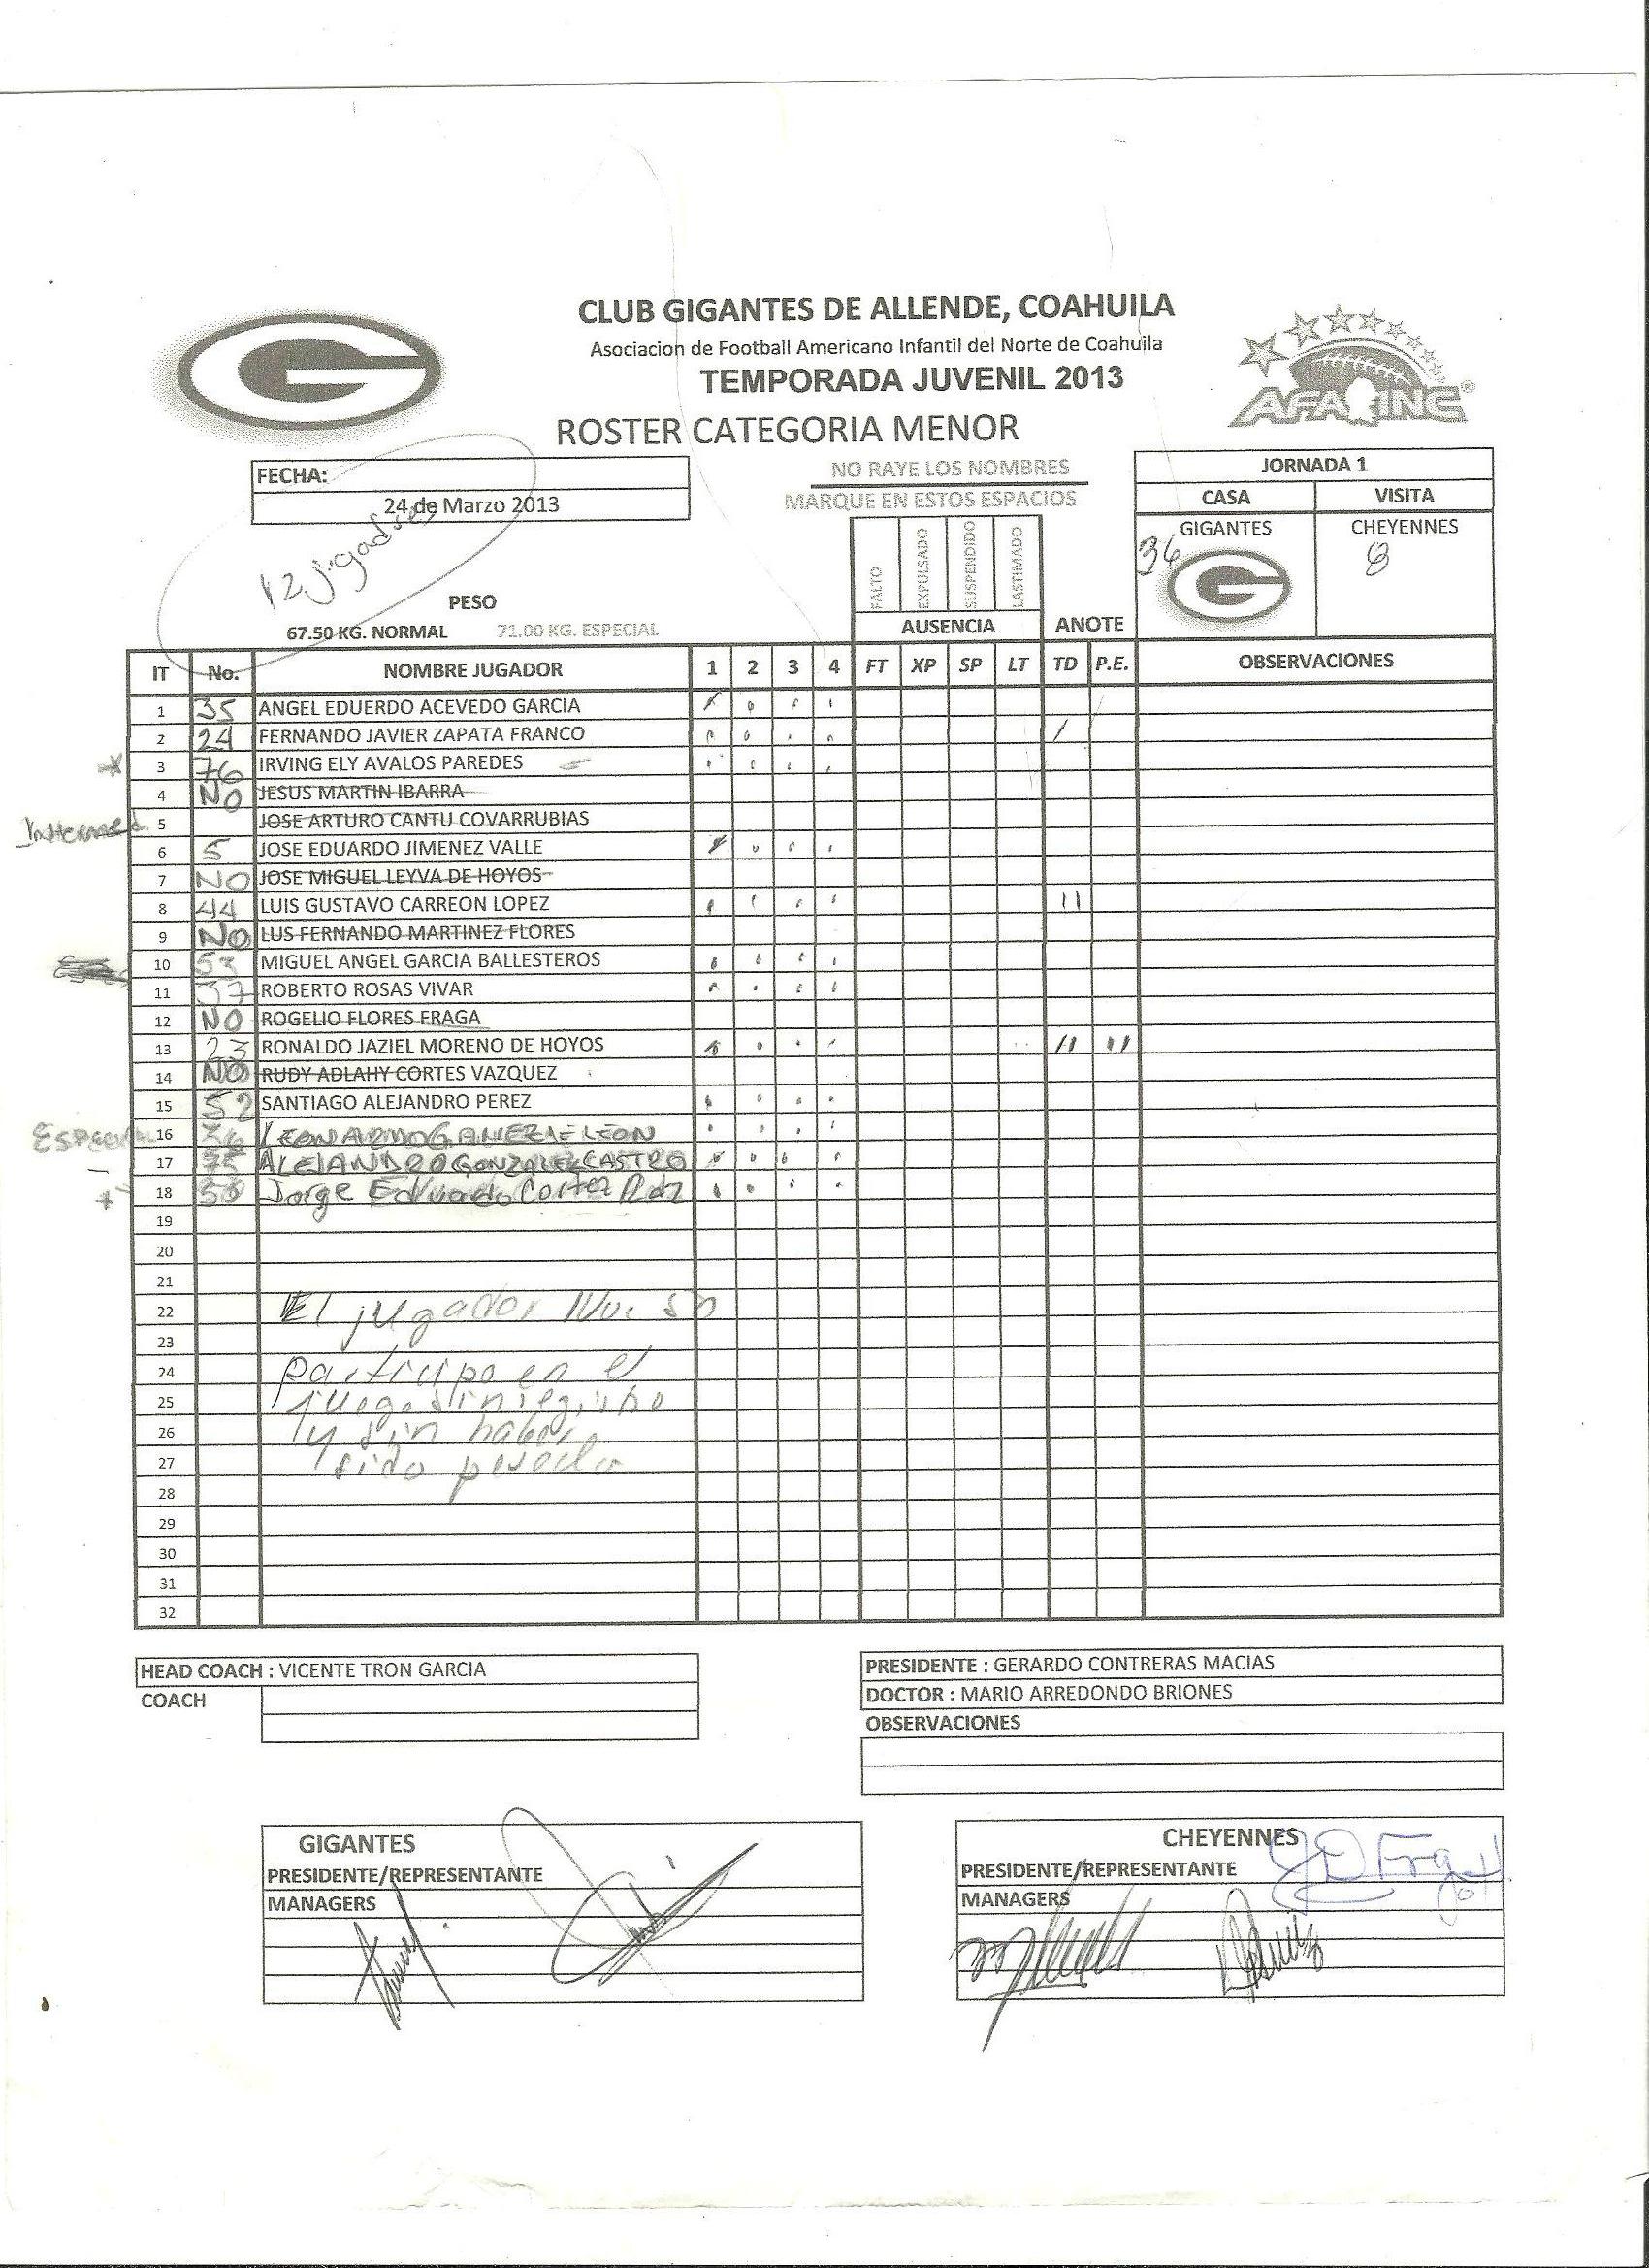 CLUB GIGANTES DE ALLENDE, COAHUILA
Asociacion de Football Americano Infantil del Norte de Coahuila
TEMPORADA JUVENIL 2013
ROSTER CATEGORIA MENOR
AFAINC®
G
FECHA:
24 de Marzo 2013
12 jugadores
NO RAYE LOS NOMBRES
MARQUE EN ESTOS ESPACIOS
JORNADA 1
CASA VISITA
GIGANTES CHEYENNES
36 8
G
FALTO EXPULSADO SUSPENDIDO LASTIMADO
PESO
67.50 KG. NORMAL 71.00 KG. ESPECIAL
AUSENCIA ANOTE
IT No. NOMBRE JUGADOR 1 2 3 4 FT XP SP LT TD P.E. OBSERVACIONES
1 35 ANGEL EDUERDO ACEVEDO GARCIA
2 24 FERNANDO JAVIER ZAPATA FRANCO /
* 3 76 IRVING ELY AVALOS PAREDES
4 NO JESUS MARTIN IBARRA
5 JOSE ARTURO CANTU COVARRUBIAS
6 5 JOSE EDUARDO JIMENEZ VALLE
7 NO JOSE MIGUEL LEYVA DE HOYOS
8 44 LUIS GUSTAVO CARREON LOPEZ II
9 NO LUS FERNANDO MARTINEZ FLORES
10 53 MIGUEL ANGEL GARCIA BALLESTEROS
11 37 ROBERTO ROSAS VIVAR
12 NO ROGELIO FLORES FRAGA
13 23 RONALDO JAZIEL MORENO DE HOYOS II II
14 NO RUDY ADLAHY CORTES VAZQUEZ
15 52 SANTIAGO ALEJANDRO PEREZ
ESPECIAL 16 LEON
17 ALEJANDRO GONZALEZ CASTRO
18 Jorge Eduardo Cortez Rdz
19
20
21
22 El jugador
23
24 participo en el
25 juego
26 y sin haber
27 sido pesado
28
29
30
31
32
HEAD COACH : VICENTE TRON GARCIA
COACH
PRESIDENTE : GERARDO CONTRERAS MACIAS
DOCTOR : MARIO ARREDONDO BRIONES
OBSERVACIONES
GIGANTES
PRESIDENTE/REPRESENTANTE
MANAGERS
CHEYENNES
PRESIDENTE/REPRESENTANTE
MANAGERS